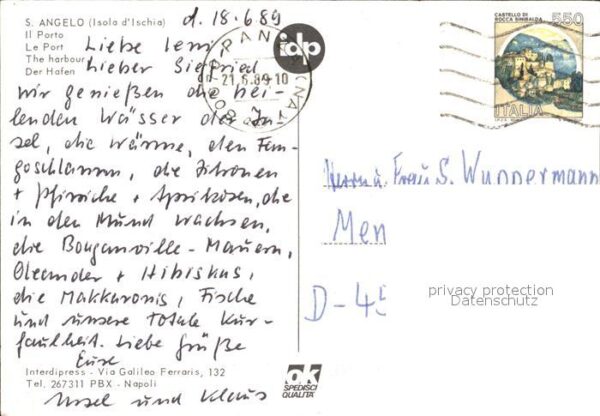 S. ANGELO (Isola d'Ischia) d. 18.6.89
Il Porto
Le Port
The harbour
Der Hafen
Liebe Leni
Lieber Siegfried
wir genießen die hei-
lenden Wässer der In-
sel, die Wärme, den Fan-
goschlamm, die Zitronen
+ Pfirsiche + Aprikosen, die
in den Mund wachsen,
die Bouganville-Mauern,
Oleander + Hibiskus,
die Makkaronis, Fische
und unsere totale Kur-
faulheit. Liebe Grüße
Eure
Interdipress - Via Galileo Ferraris, 132
Tel. 267311 PBX - Napoli
und Klaus
idp
21.6.89-10
CASTELLO DI
ROCCA SINIBALDA
550
ITALIA
Herrn u. Frau S. Wunnermann
Men
D-45
privacy protection
Datenschutz
ok
SPEDISCI
QUALITA'